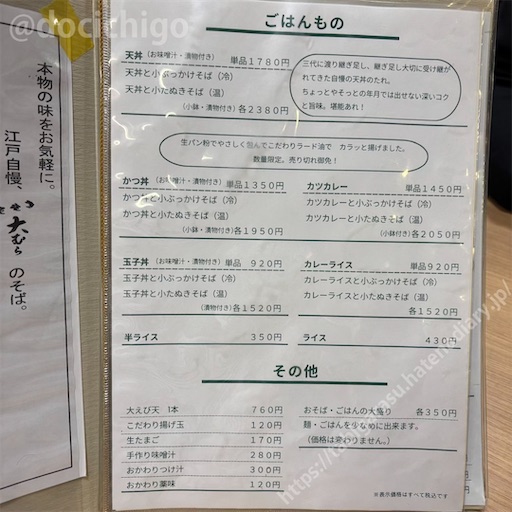 @docichigo
本物の味をお気軽に。
江戸自慢、
大むら のそば。
ごはんもの
天丼 (お味噌汁・漬物付き) 単品1780円
天丼と小ぶっかけそば（冷）
天丼と小たぬきそば（温）
(小鉢・漬物付き) 各2380円
三代に渡り継ぎ足し、継ぎ足し大切に受け継が
れてきた自慢の天丼のたれ。
ちょっとやそっとの年月では出せない深いコク
と旨味。堪能あれ！
生パン粉でやさしく包んでこだわりラード油で カラッと揚げました。
数量限定。売り切れ御免！
かつ丼 (お味噌汁・漬物付き) 単品1350円
かつ丼と小ぶっかけそば（冷）
かつ丼と小たぬきそば（温）
(小鉢・漬物付き) 各1950円
カツカレー 単品1450円
カツカレーと小ぶっかけそば（冷）
カツカレーと小たぬきそば（温）
(小鉢付き) 各2050円
玉子丼 (お味噌汁・漬物付き) 単品 920円
玉子丼と小ぶっかけそば（冷）
玉子丼と小たぬきそば（温）
(漬物付き) 各1520円
カレーライス 単品920円
カレーライスと小ぶっかけそば（冷）
カレーライスと小たぬきそば（温）
各1520円
半ライス 350円
ライス 430円
その他
大えび天 1本 760円
こだわり揚げ玉 120円
生たまご 170円
手作り味噌汁 280円
おかわりつけ汁 300円
おかわり薬味 120円
おそば・ごはんの大盛り 各350円
麺・ごはんを少なめに出来ます。
（価格は変わりません。）
※表示価格はすべて税込です